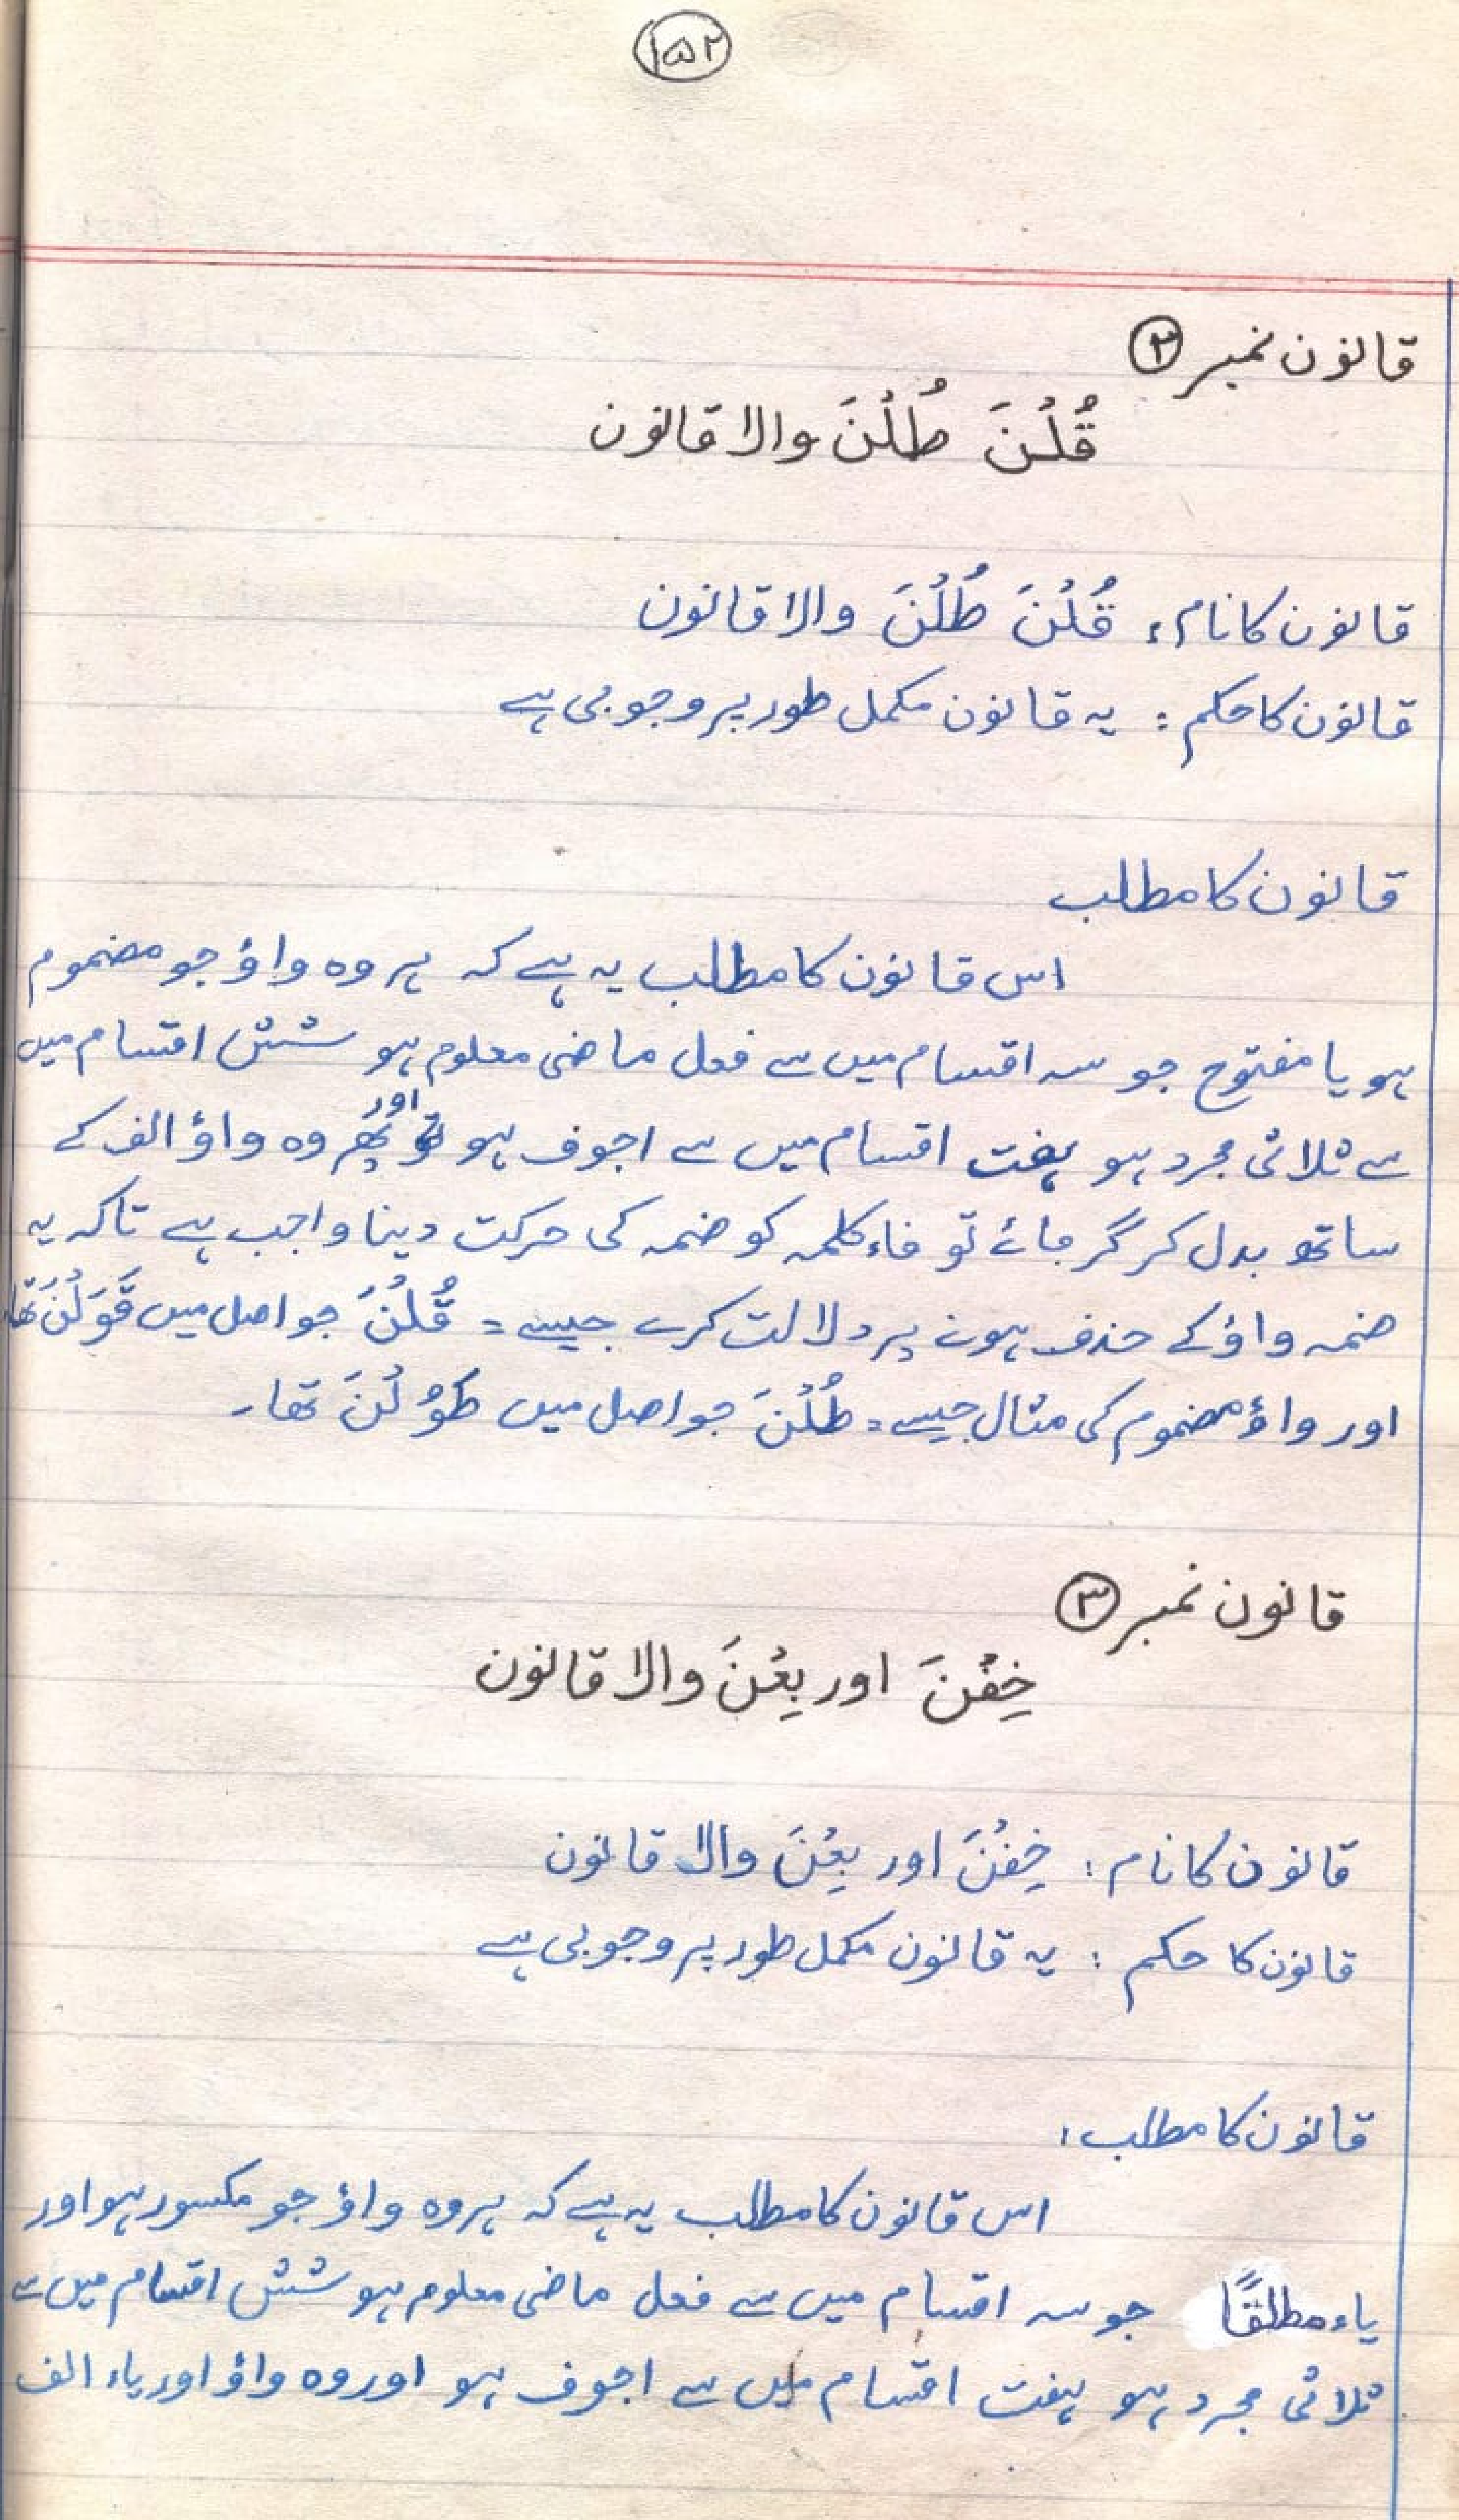 ۱۵۲
قانون نمبر ۲
قُلْنَ طُلْنَ والا قانون
قانون کا نام: قُلْنَ طُلْنَ والا قانون
قانون کا حکم: یہ قانون مکمل طور پر وجوبی ہے
قانون کا مطلب
اس قانون کا مطلب یہ ہے کہ ہر وہ واؤ جو مضموم
ہو یا مفتوح جو سہ اقسام میں سے فعل ماضی معلوم ہو شش اقسام میں
سے ثلاثی مجرد ہو ہفت اقسام میں سے اجوف ہو اور وہ واؤ الف کے
ساتھ بدل کر گر جائے تو فاء کلمہ کو ضمہ کی حرکت دینا واجب ہے تاکہ یہ
ضمہ واؤ کے حذف ہونے پر دلالت کرے جیسے = قُلْنَ جو اصل میں قَوَلْنَ تھا
اور واؤ مضموم کی مثال جیسے = طُلْنَ جو اصل میں طَوُلْنَ تھا۔
قانون نمبر ۳
خِفْنَ اور بِعْنَ والا قانون
قانون کا نام: خِفْنَ اور بِعْنَ والا قانون
قانون کا حکم: یہ قانون مکمل طور پر وجوبی ہے
قانون کا مطلب:
اس قانون کا مطلب یہ ہے کہ ہر وہ واؤ جو مکسور ہو اور
یاء مطلقًا جو سہ اقسام میں سے فعل ماضی معلوم ہو شش اقسام میں سے
ثلاثی مجرد ہو ہفت اقسام میں سے اجوف ہو اور وہ واؤ اور یاء الف